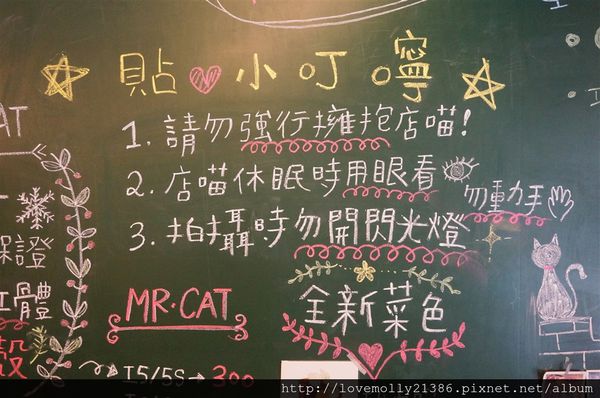 貼♥小叮嚀
1. 請勿強行擁抱店喵!
2. 店喵休眠時用眼看
勿動手
3. 拍攝時勿開閃光燈
AT
保證
體
殼
MR·CAT
全新菜色
I5/5S→300
http://lovemolly21386.pixnet.net/album